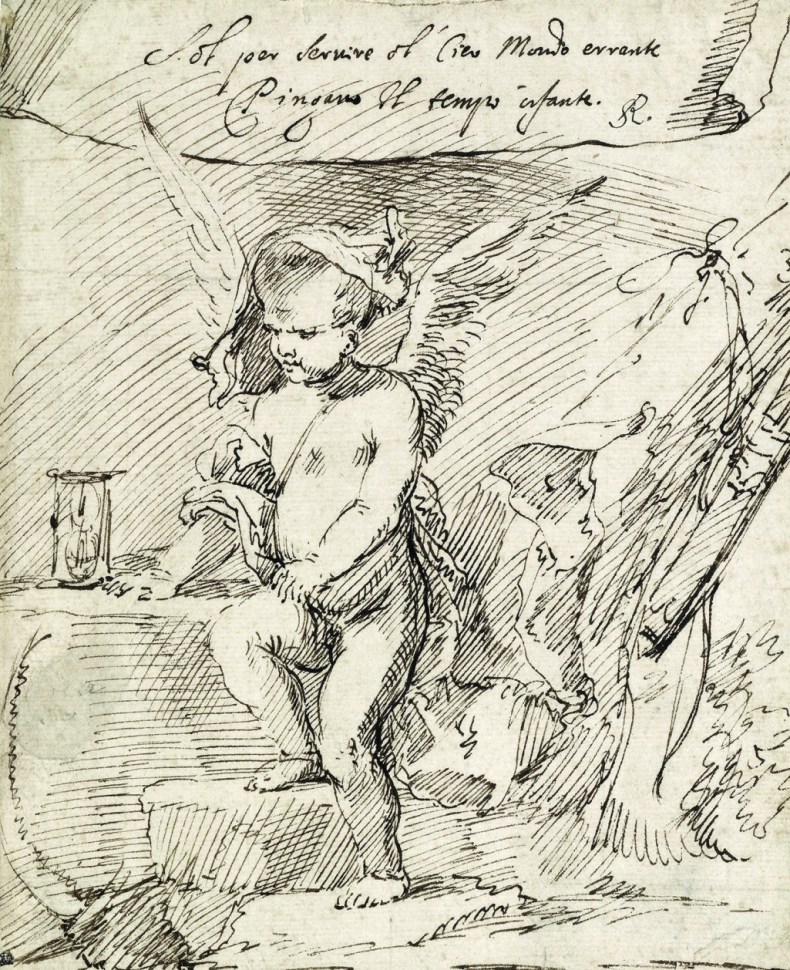 Sol per servire al Cieo Mondo errante
Pingano Il tempo ifante. R.